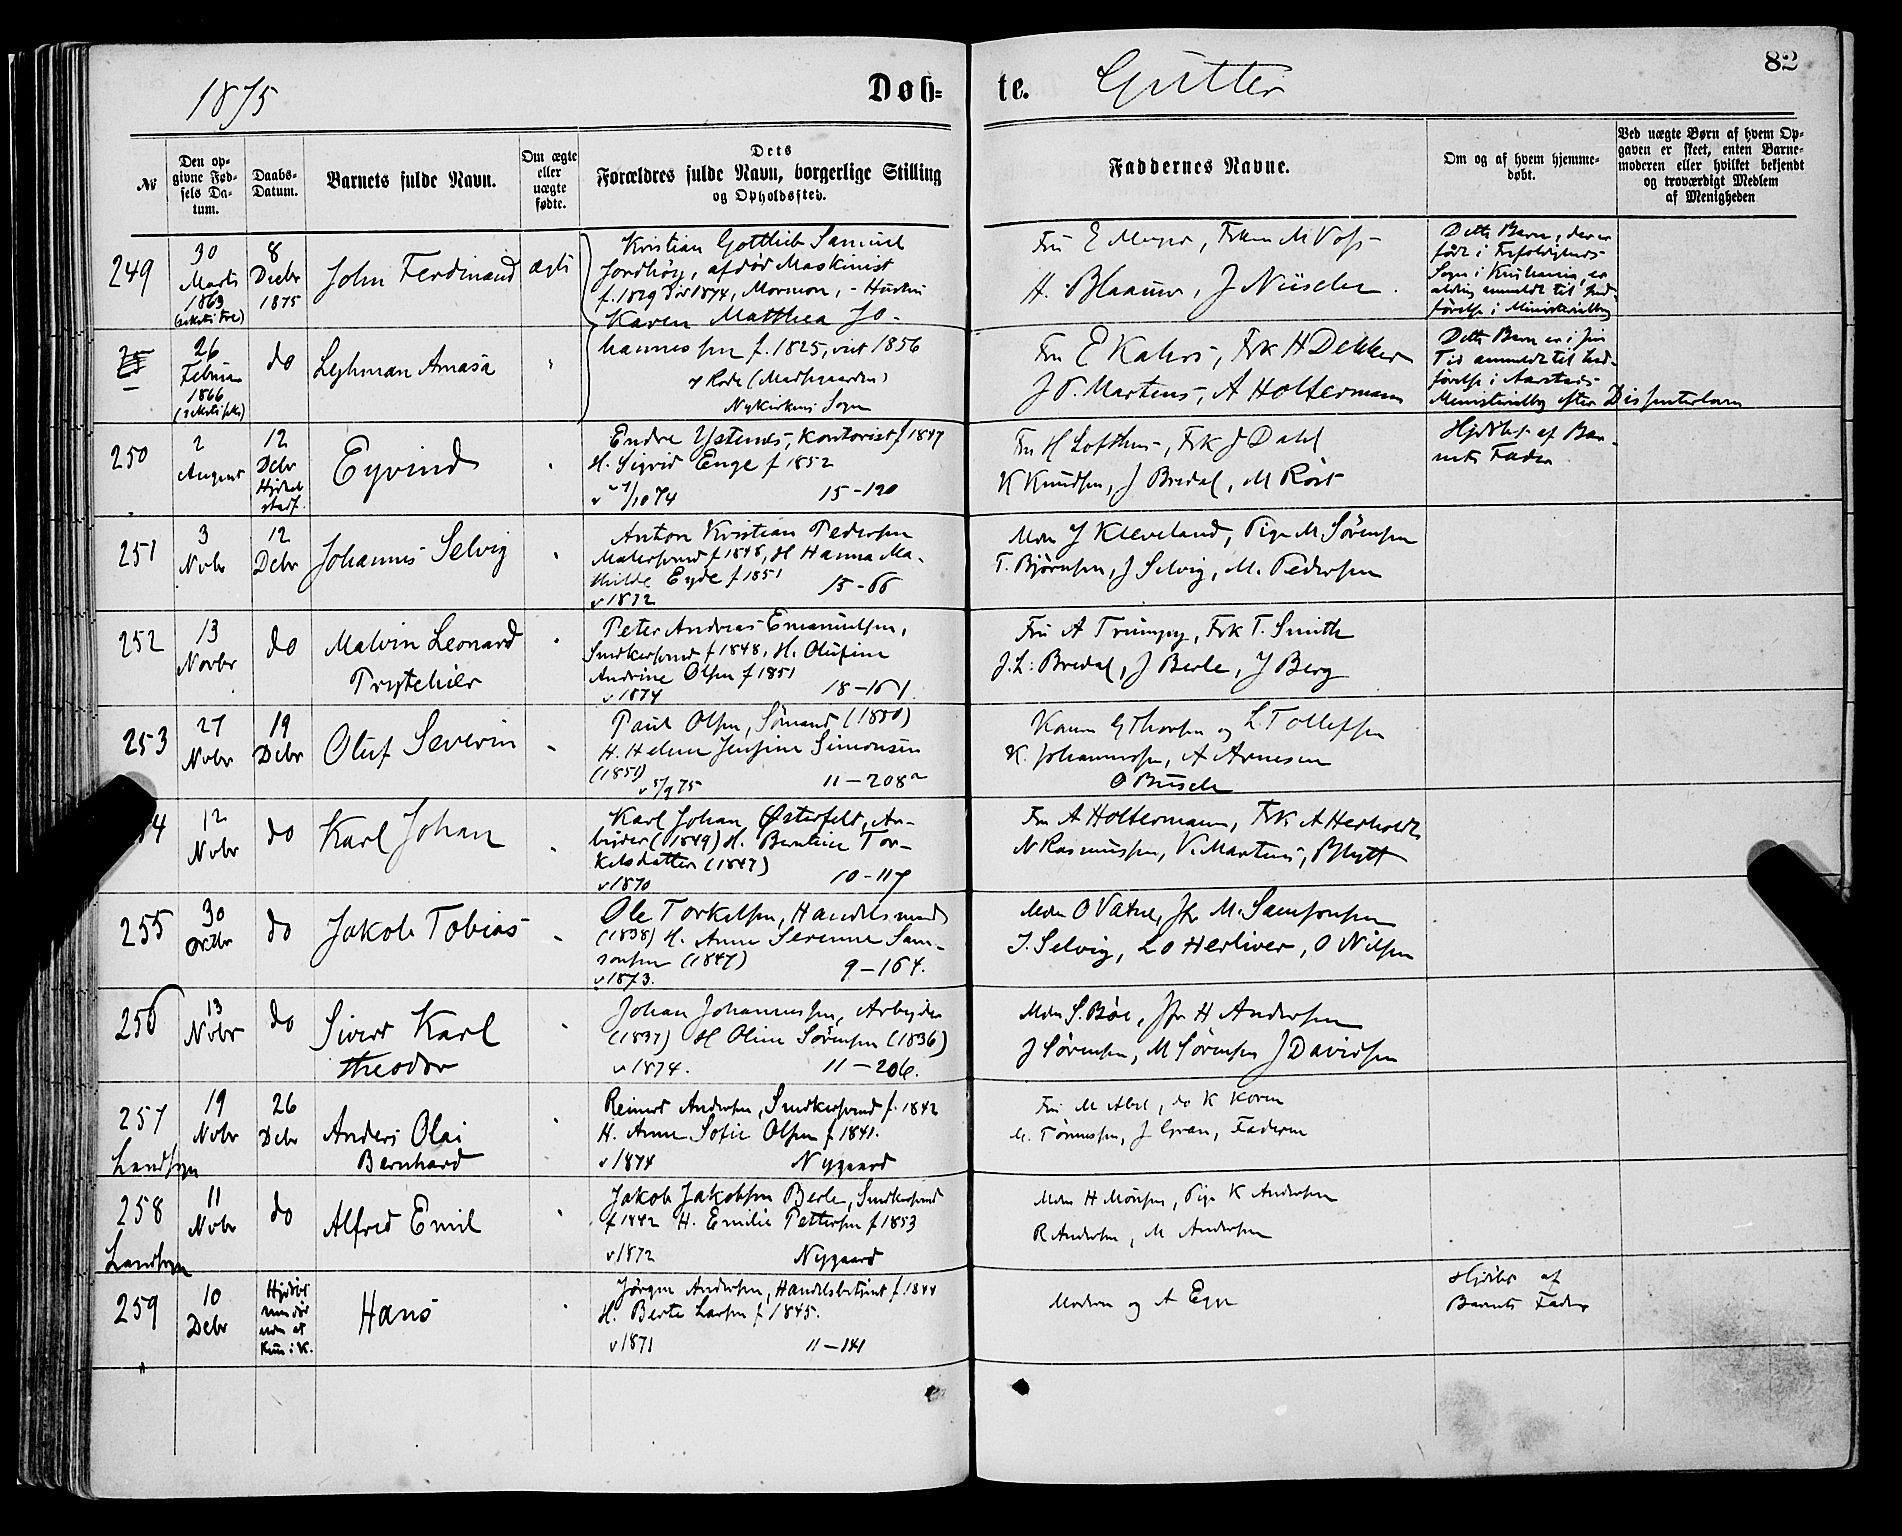 1875
Døb-
te.
Gutter
82
No
Den op-
givne Fød-
sels Da-
tum.
Daabs-
Datum.
Barnets fulde Navn.
Om ægte
eller
uægte
fødte.
Dets
Forældres fulde Navn, borgerlige Stilling
og Opholdssted.
Faddernes Navne.
Om og af hvem hjemme-
døbt.
Ved uægte Børn af hvem Op-
gaven er skeet, enten Barne-
moderen eller hvilket bekjendt
og troværdigt Medlem
af Menigheden
249
30
Marts
1863
8
Decbr
1875
John Ferdinand
ægte
Kristian Gottlieb Samuel
Jordhøy, afdød Maskinist
f. 1829 død 1874, Mormon, - Hustru
Karen Matthea Jo-
Fru E Meyer, M Voss
H. Blaauw, J Nüscler
Dette Barn, der er
født i Trefoldigheds-
Sogn i Kristiania, er
aldrig anmeldt til Ind-
førelse i Ministerialbog
26
Februar
1866
do
Lyhman Amasa
hannessen f. 1825, viet 1856
Rode (Madsgaarden)
Nykirkens Sogn
Fru E Kahrs, Frk H Dekker
J P. Martens, A Holtermann
Dette Barn er i sin
Tid anmeldt til Ind-
førelse i Aarstads
Ministerialbog efter Dissenterloven
250
2
August
12
Debr
Hjdøbt
stadf.
Eyvind
Endre Ystenes, Kontorist f 1847
H. Sigrid Enge f 1852
15-120
Fru H Lofthus, Frk J Dahl
K Knudsen, J Bredal, M Røst
Hjdøbt af Bar-
nets Fader
251
3
Nvbr
12
Debr
Johannes Selvig
Anton Kristian Pedersen
Malersvend f 1848, H Hanna Ma-
thilde Eyde f 1851
v 1872
15-66
Mdm J Kleveland, Pige M Sørensen
T. Bjørnsen, J Selvig, M. Pedersen
252
13
Novbr
do
Malvin Leonard
Trytehier
Peter Andreas Emanuelsen,
Snedkersvend f 1848, H. Olufine
Andrine Olsen f 1851
v 1874
18-161
Fru A Trumpy, Frk T. Smith
J. L. Bredal, J Berle, J Berg
253
27
Nvbr
19
Debr
Oluf Severin
Paul Olsen, Sømand (1850)
H. Helene Jensine Simonsen
(1851)
v 5/9 75
11-208
Konen G Thorsen og L. Tollefsen
K. Johannessen, A Arnesen
O Busch
4
12
Nvbr
do
Karl Johan
Karl Johan Østerfeldt, Ar-
beider (1849) H. Bentine Tor-
kelsdatter (1847)
v 1870
10-117
Fru A Holtermann, Frk A Herholdt
N Rasmussen, V. Martens, P Blytt
255
30
Octbr
do
Jakob Tobias
Ole Torkelsen, Handelsmand
(1838) H. Anne Serenne Sam-
sonsen (1847)
v 1873.
9-164.
Mdm O Vatne, Jfr M. Samsonsen
J. Selvig, L O Herliver, O Nilsen
256
13
Nvbr
do
Sivert Karl
Theodor
Johan Johannessen, Arbeider
(1837) H Oline Sørensen (1836)
v 1874.
11-206.
Mdm S. Bøe, Jfr H Andersen
J Sørensen, M Sørensen J Davidsen
257
Landsogn
19
Nvbr
26
Debr
Anders Olai
Bernhard
Reinert Andersen, Snedkersvend f. 1842
H. Anne Sofie Olsen f 1841.
v 1874
Nygaard
Fru M Abel, do K Koren
M. Tønnessen, J Gran, Faderen
258
Landsogn
11
Nvbr
do
Alfred Emil
Jakob Jakobsen Berle, Snedkersvend
f 1842 H. Emilie Pettersen f 1853
v 1872
Nygaard
Mdm H Monsen, Pige K Andersen
R Andersen, M Andersen
259
10
Debr
Hjdøbt
men død
uden at
Hans
Jørgen Andersen, Handelsbetjent f. 1844
H. Berte Larsen f 1845.
v 1871
11-141
Moderen og A Ege
Hjdøbt af
Barnets Fader